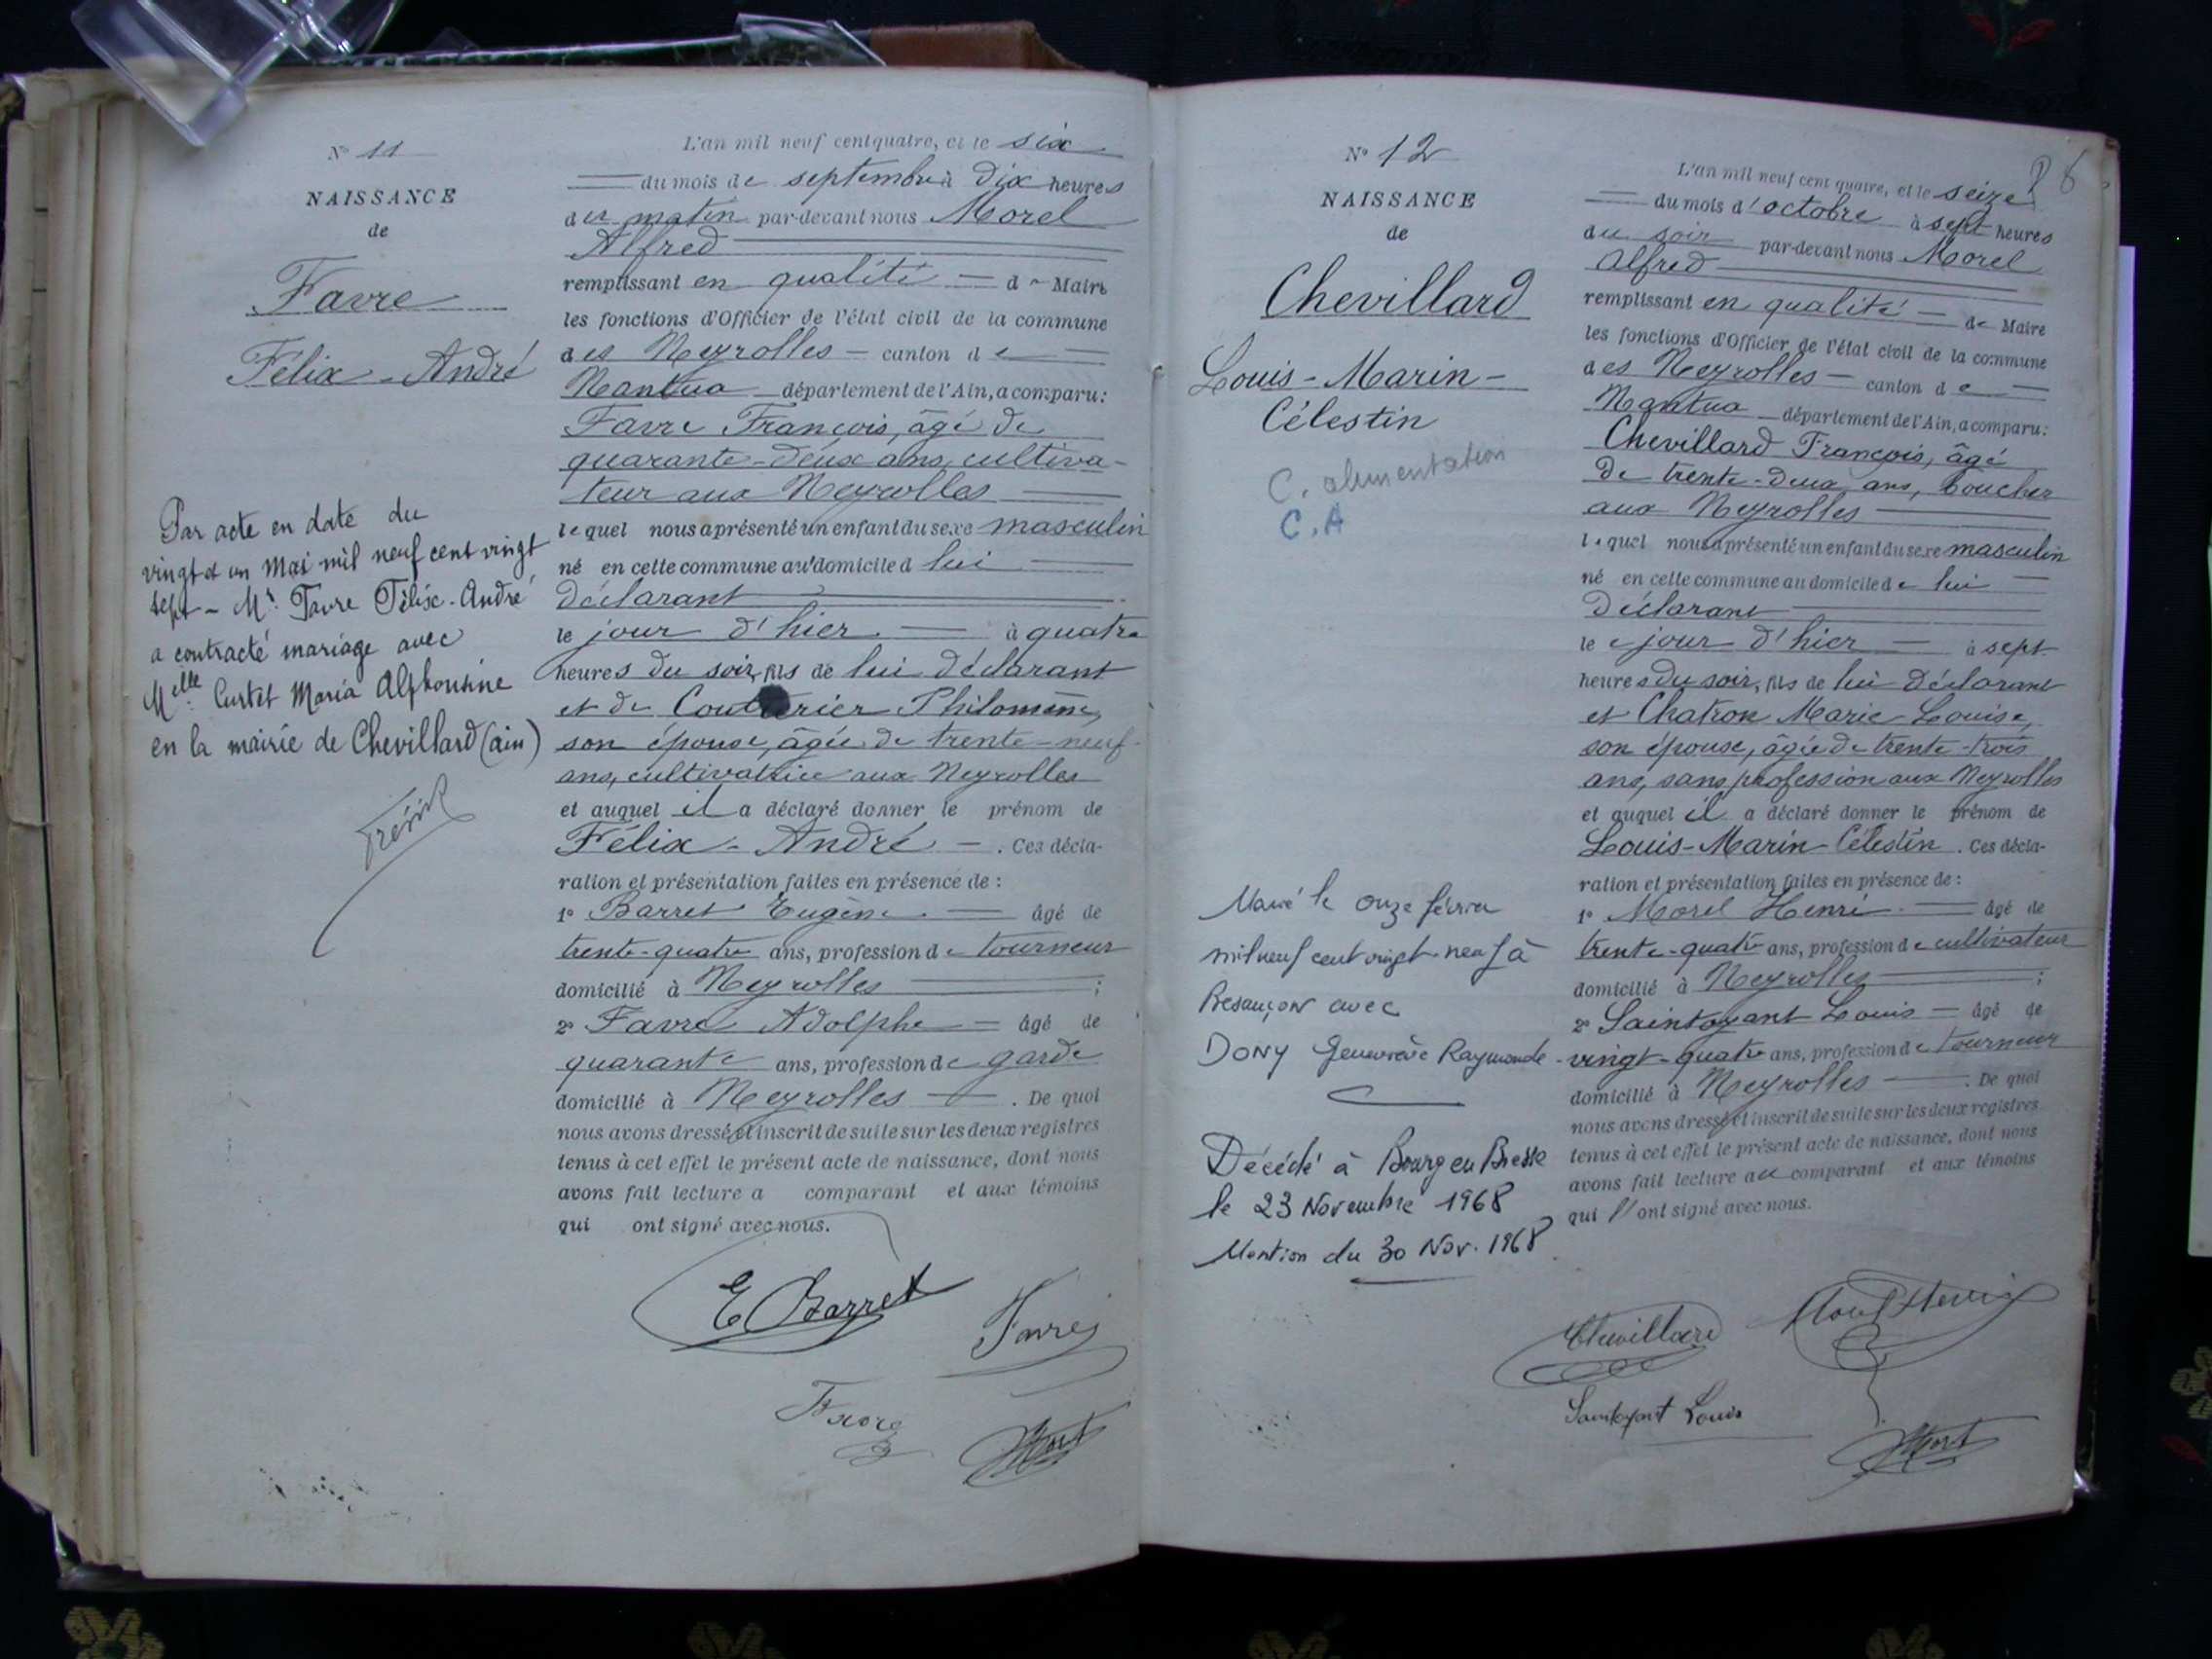 N° 11
NAISSANCE
de
Favre
Félix-André
Par acte en date du
vingt et un Mai mil neuf cent vingt
sept - Mr. Favre Félix-André
a contracté mariage avec
Melle Curtet Maria Alphonsine
en la mairie de Chevillard (ain)
L'an mil neuf cent quatre, et le six
du mois de septembre à dix heures
du matin par-devant nous Morel
Alfred
remplissant en qualité de Maire
les fonctions d'Officier de l'état civil de la commune
des Neyrolles - canton de
Nantua département de l'Ain, a comparu:
Favre François, âgé de
quarante-deux ans, cultiva-
teur aux Neyrolles
lequel nous a présenté un enfant du sexe masculin
né en cette commune au domicile d lui
déclarant
le jour d'hier à quatre
heures du soir, fils de lui déclarant
et de Couturier Philomène,
son épouse, âgée de trente-neuf
ans, cultivatrice aux Neyrolles
et auquel il a déclaré donner le prénom de
Félix-André -. Ces décla-
ration et présentation faites en présence de :
1° Barret Eugène âgé de
trente-quatre ans, profession de tourneur
domicilié à Neyrolles ;
2° Favre Adolphe - âgé de
quarante ans, profession de garde
domicilié à Neyrolles . De quoi
nous avons dressé et inscrit de suite sur les deux registres
tenus à cet effet le présent acte de naissance, dont nous
avons fait lecture a comparant et aux témoins
qui ont signé avec nous.
E Barret
Favre
Favre
N° 12
NAISSANCE
de
Chevillard
Louis-Marin-
Célestin
C. alimentation
C.A
Marié le onze février
mil neuf cent vingt-neuf à
Besançon avec
DONY Geneviève Raymonde
Décédé à Bourg en Bresse
le 23 Novembre 1968
Mention du 30 Nov. 1968
L'an mil neuf cent quatre, et le seize
du mois d'octobre à sept heures
du soir par-devant nous Morel
Alfred
remplissant en qualité - de Maire
les fonctions d'Officier de l'état civil de la commune
des Neyrolles - canton de
Nantua département de l'Ain, a comparu:
Chevillard François, âgé
de trente-deux ans, boucher
aux Neyrolles
lequel nous a présenté un enfant du sexe masculin
né en cette commune au domicile de lui
déclarant
le jour d'hier à sept
heures du soir, fils de lui déclarant
et Chatron Marie-Louise,
son épouse, âgée de trente-trois
ans, sans profession aux Neyrolles
et auquel il a déclaré donner le prénom de
Louis-Marin-Célestin. Ces décla-
ration et présentation faites en présence de :
1° Morel Henri âgé de
trente-quatre ans, profession de cultivateur
domicilié à Neyrolles ;
2° Saintoyant Louis - âgé de
vingt-quatre ans, profession de tourneur
domicilié à Neyrolles . De quoi
nous avons dressé et inscrit de suite sur les deux registres
tenus à cet effet le présent acte de naissance, dont nous
avons fait lecture au comparant et aux témoins
qui ont signé avec nous.
Chevillard
Morel Henri
Saintoyant Louis